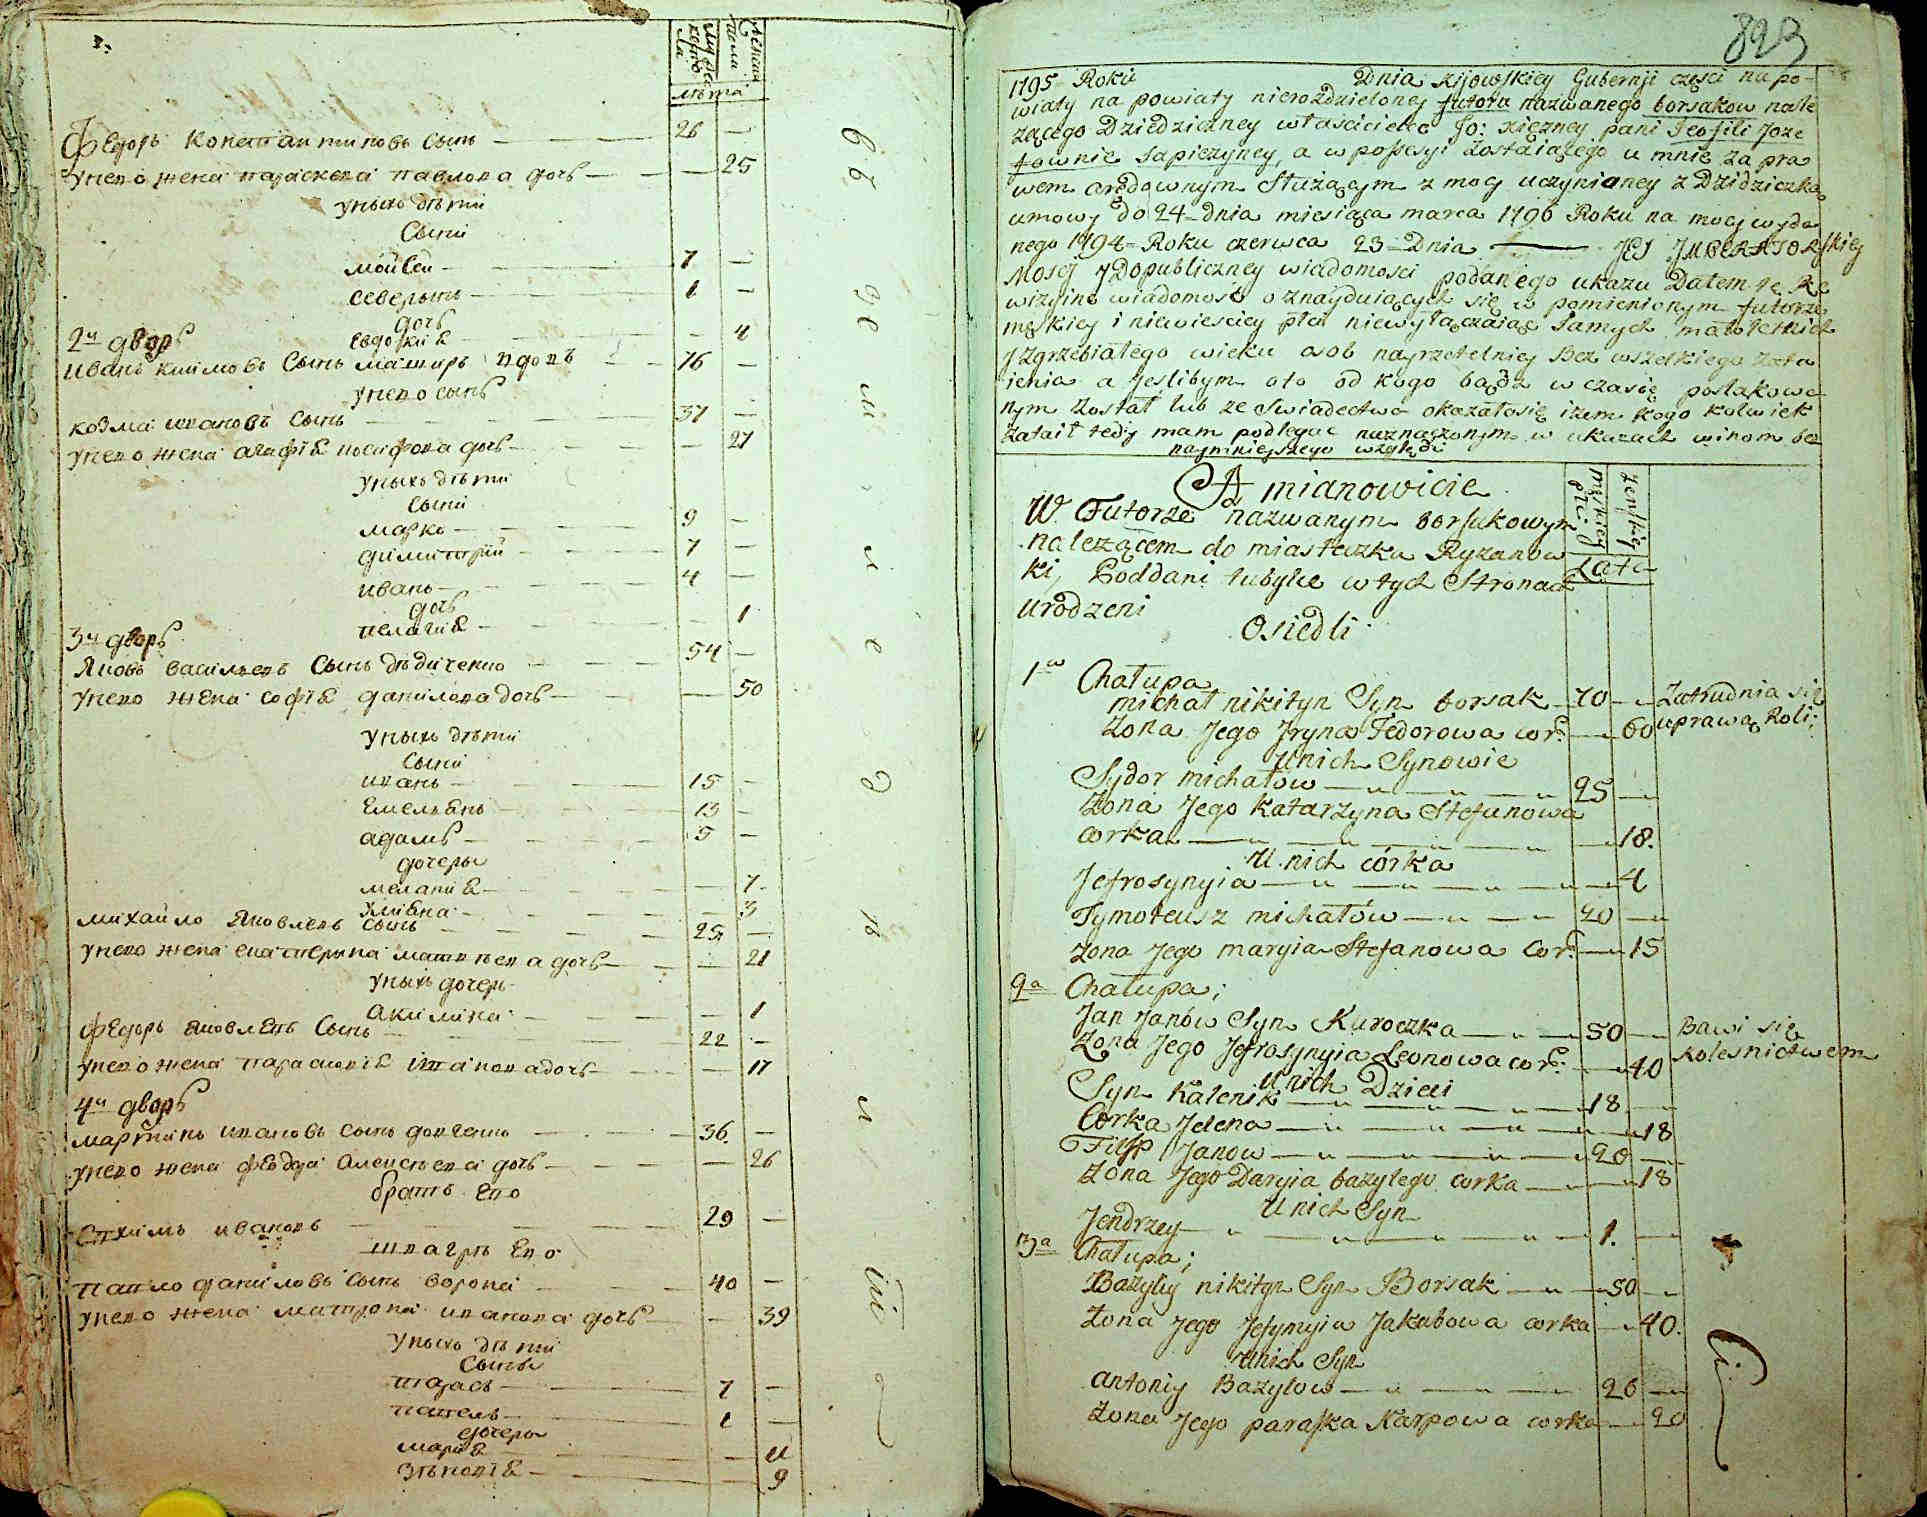 мужеска
пола
женска
лѣта
Федоръ Константиновъ сынъ 26 —
унего жена параскева павлова дочь — 25
унихъ дѣти
Сыни
мойсей — 7 —
северынъ — 1 —
дочь
евдокия — 4
2й дворъ
иванъ климовъ Сынъ 76 —
унего сынъ
козма ивановъ сынъ 37 —
унего жена агафія дочь — 27
унихъ дѣти
сыни
марко — 9 —
димитрій — 7 —
иванъ — 4 —
дочь
пелагия — 1
3й дворъ
Яковъ васильевъ Сынъ дѣдиченко 54 —
унего жена софія данилова дочь — 50
унихъ дѣти
сыни
иванъ — 15 —
Емельянъ — 13 —
адамъ — 5 —
дочеры
меланія — 7
Уліяна — 3
михайло Яковлевъ сынъ 25 —
унего жена екатерына матвѣева дочь — 21
унихъ дочерь
Акилина — 1
Федоръ яковлевъ Сынъ 22 —
унего жена параскевія дочь — 17
4й дворъ
мартинъ ивановъ сынъ довгенко 36 —
унего жена Алексѣева дочь — 26
братъ его
ивановъ 29 —
швагръ его
павло даниловъ сынъ ворона 40 —
унего жена матрона иванова дочь — 39
унихъ дѣти
Сыны
тарасъ — 7 —
павелъ — 1 —
дочеры
марія — 11
зѣновія — 9
823
1795 Roku Dnia Kijowskiey Gubernji części na po-
wiaty na powiaty nierozdzieloney futoru nazwanego borsakow nale
zącego Dziedziczney właścicielce Jo: xiężney pani Teofili Joze
fownie Sapiezyney, a w possesyi zostaiącego u mnie za pra
wem arędownym służącym z mocy uczynioney z Dzidziczką
umowy do 24 Dnia miesiąca marca 1796 Roku na mocy wyda
nego 1794 Roku czerwca 23 Dnia — JEJ JMPERATORskiey
Mosci y Dopubliczney wiadomosci podanego ukazu Dałem tę Re
wizyiną wiadomość o znayduiących się w pomienionym futorze
męskiey i niewiesciey płci niewyłączaiąc samych małoletnich
y zgrzebiałego wieku osob nayrzetelniey Bez wszelkiego zata
ienia a jeslibym oto od kogo bądz w czasie poszlakowa
nym został lub ze swiadectwa okazałosię iżem kogo kolwiek
zataił tedy mam podlegac naznaczonym w ukazach winom bez
naymnieyszego względu
A mianowicie
męskiey płci
żeńskiey
Lata
W Futorze nazwanym borsukowym
należącem do miasteczka Ryzanow
ki, Poddani tubylce w tych Stronach
urodzeni
Osiedli
1a Chałupa
michał nikityn Syn borsak 70 — Zatrudnia się
Żona Jego Jryna Fedorowa cor: — 60 uprawą Roli;
U nich Synowie
Sydor michałow — 25 —
Żona Jego Katarzyna Stefanowa
corka — 18.
U nich córka
Jefrosynyia — 4
Tymoteusz michałów — 20 —
Żona Jego maryia Stefanowa Cor: — 15
2a Chałupa;
Jan Janów Syn Kuroczka — 50 — Bawi się
Żona Jego Jefrosynyia Leonowa cor: — 40 Kolesnictwem
U nich Dzieci
Syn Kalenik — 18 —
Corka Jelena — 18
Filip Janow — 20 —
Żona Jego Daryia bazylego corka — 18
U nich Syn
Jendrzey — 1. —
3a Chałupa;
Bazyly nikityn Syn Borsak — 50 —
Żona Jego Jefymyia Jakubowa corka — 40.
U nich Syn
Antoniy Bazylow — 26 —
Żona Jego paraska Karpowa corka — 20